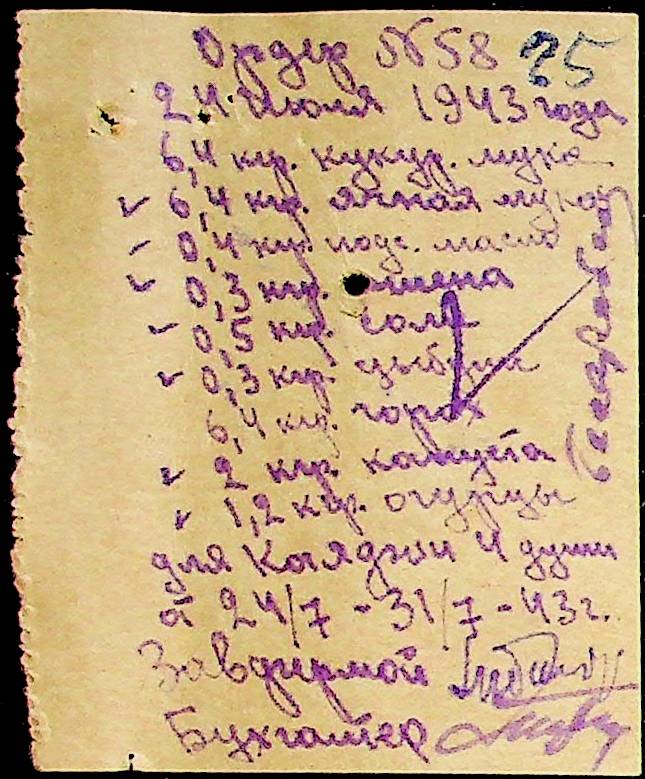 Ордер №58 25
24 июля 1943 года
6,4 кгр. кукур. мука
✓ 6,4 кгр. ячная мука
✓ 0,4 кгр. подс. масло
✓ 0,3 кгр. пшена
✓ 0,5 кгр. соль
✓ 0,3 кгр. цыбуля
6,4 кгр. горох
✓ 2 кгр. капуста
✓ 1,2 кгр. огурцы
для 4 души
а 24/7 - 31/7 - 43 г.
Завфермой
Бухгалтер